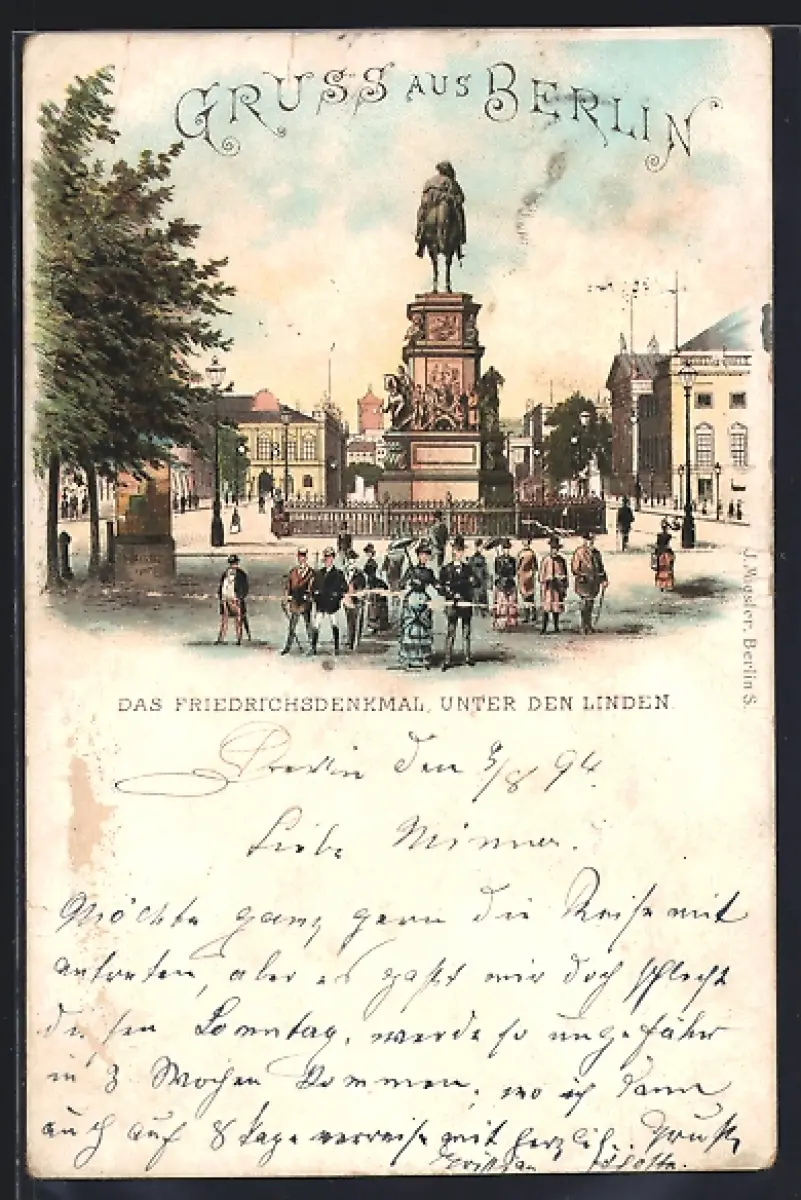 GRUSS AUS BERLIN
J. Miesler, Berlin S.
DAS FRIEDRICHSDENKMAL, UNTER DEN LINDEN.
Berlin den 3/8 94.
Liebe Minna.
Möchte ganz gern die Reise mit
antreten, aber es paßt mir doch schlecht
diesen Sonntag, werde so ungefähr
in 3 Wochen kommen, wo ich dann
auch auf 8 Tage verreise mit herzlich. Gruß